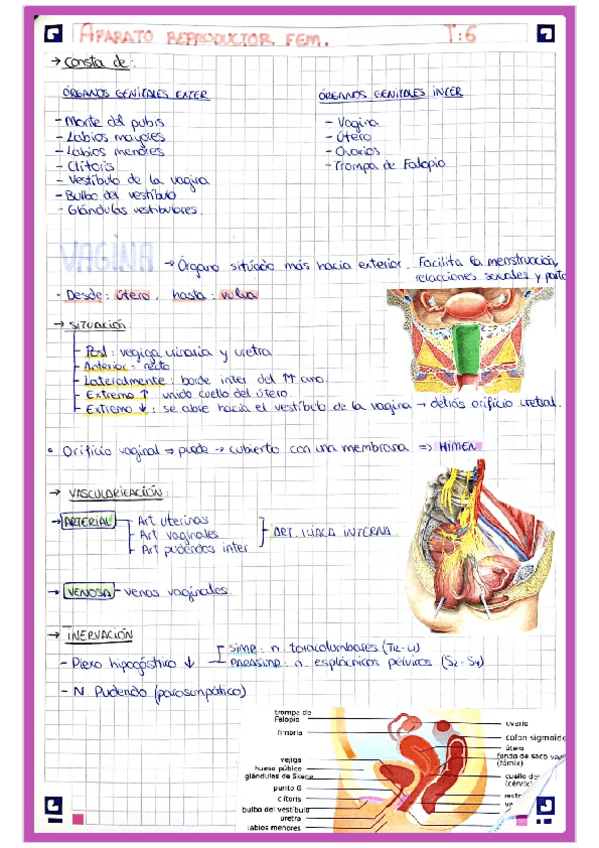 APARATO REPRODUCTOR FEM. T:6
→ Consta de:
ÓRGANOS GENITALES EXTER
- Monte del pubis
- Labios mayores
- Labios menores
- Clítoris
- Vestíbulo de la vagina
- Bulbo del vestíbulo
- Glándulas vestibulares.
ÓRGANOS GENITALES INTER
- Vagina
- Útero
- Ovarios
- Trompa de Falopio
VAGINA → Órgano situado más hacia exterior. Facilita la menstruación,
relacciones sexuales y parto
· Desde: útero, hasta: vulva
→ SITUACIÓN:
- Post: vegiga urinaria y uretra
- Anterior: recto
- Lateralmente: borde inter del ano.
- Extremo ↑ unido cuello del útero.
- Extremo ↓: se abre hacia el vestíbulo de la vagina → detrás orificio uretral.
• Orificio vaginal ⇒ puede → cubierto con una membrana ⇒ HIMEN
→ VASCULARIZACIÓN:
→ ARTERIAL
- Art uterinas
- Art vaginales
- Art pudendas inter
ART. ILÍACA INTERNA.
→ VENOSA - venas vaginales.
→ INERVACIÓN
- Plexo hipogástrico ↓
SIMP: n. toracolumbares (T12-L1)
PARASIMP: n. esplácnicos pélvicos (S2-S4)
- N. Pudendo (parasimpático)
trompa de
Falopio
fimbria
vejiga
hueso púbico
glándulas de Skene
punto G
clítoris
bulbo del vestíbulo
uretra
labios menores
ovario
colon sigmoide
útero
fondo de saco vag
(fórnix)
cuello del
(cérvix)
recto
va